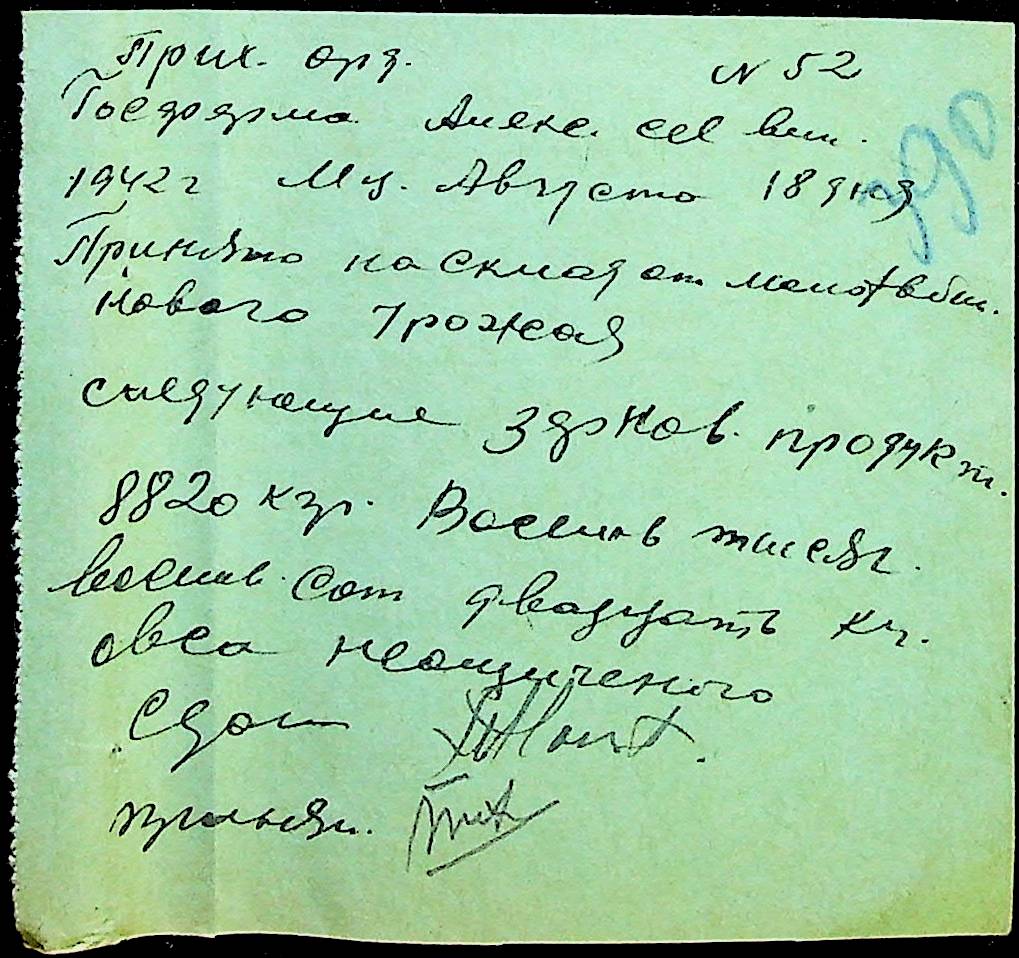 Прих. орд. N 52
Госферма Алекс.
390
1942г Мц. Августа 18 дня
Принято на склад от
нового урожая
следующие зернов. продукт.
8820 кгр. Восемь тысяч.
восем. сот двадцать кг.
овса неощиченого
Сдал
принял.